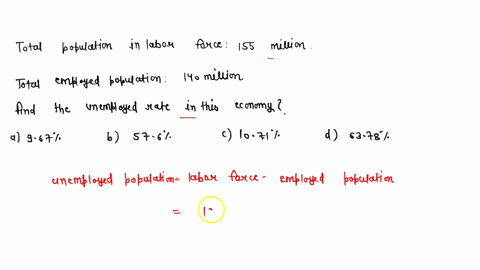 Total population in labor force: 155 million.
Total employed population: 140 million
find the unemployed rate in this economy?
a) 9.67% b) 57.6% c) 10.71% d) 63.78%
unemployed population= labor force - employed population
= 1